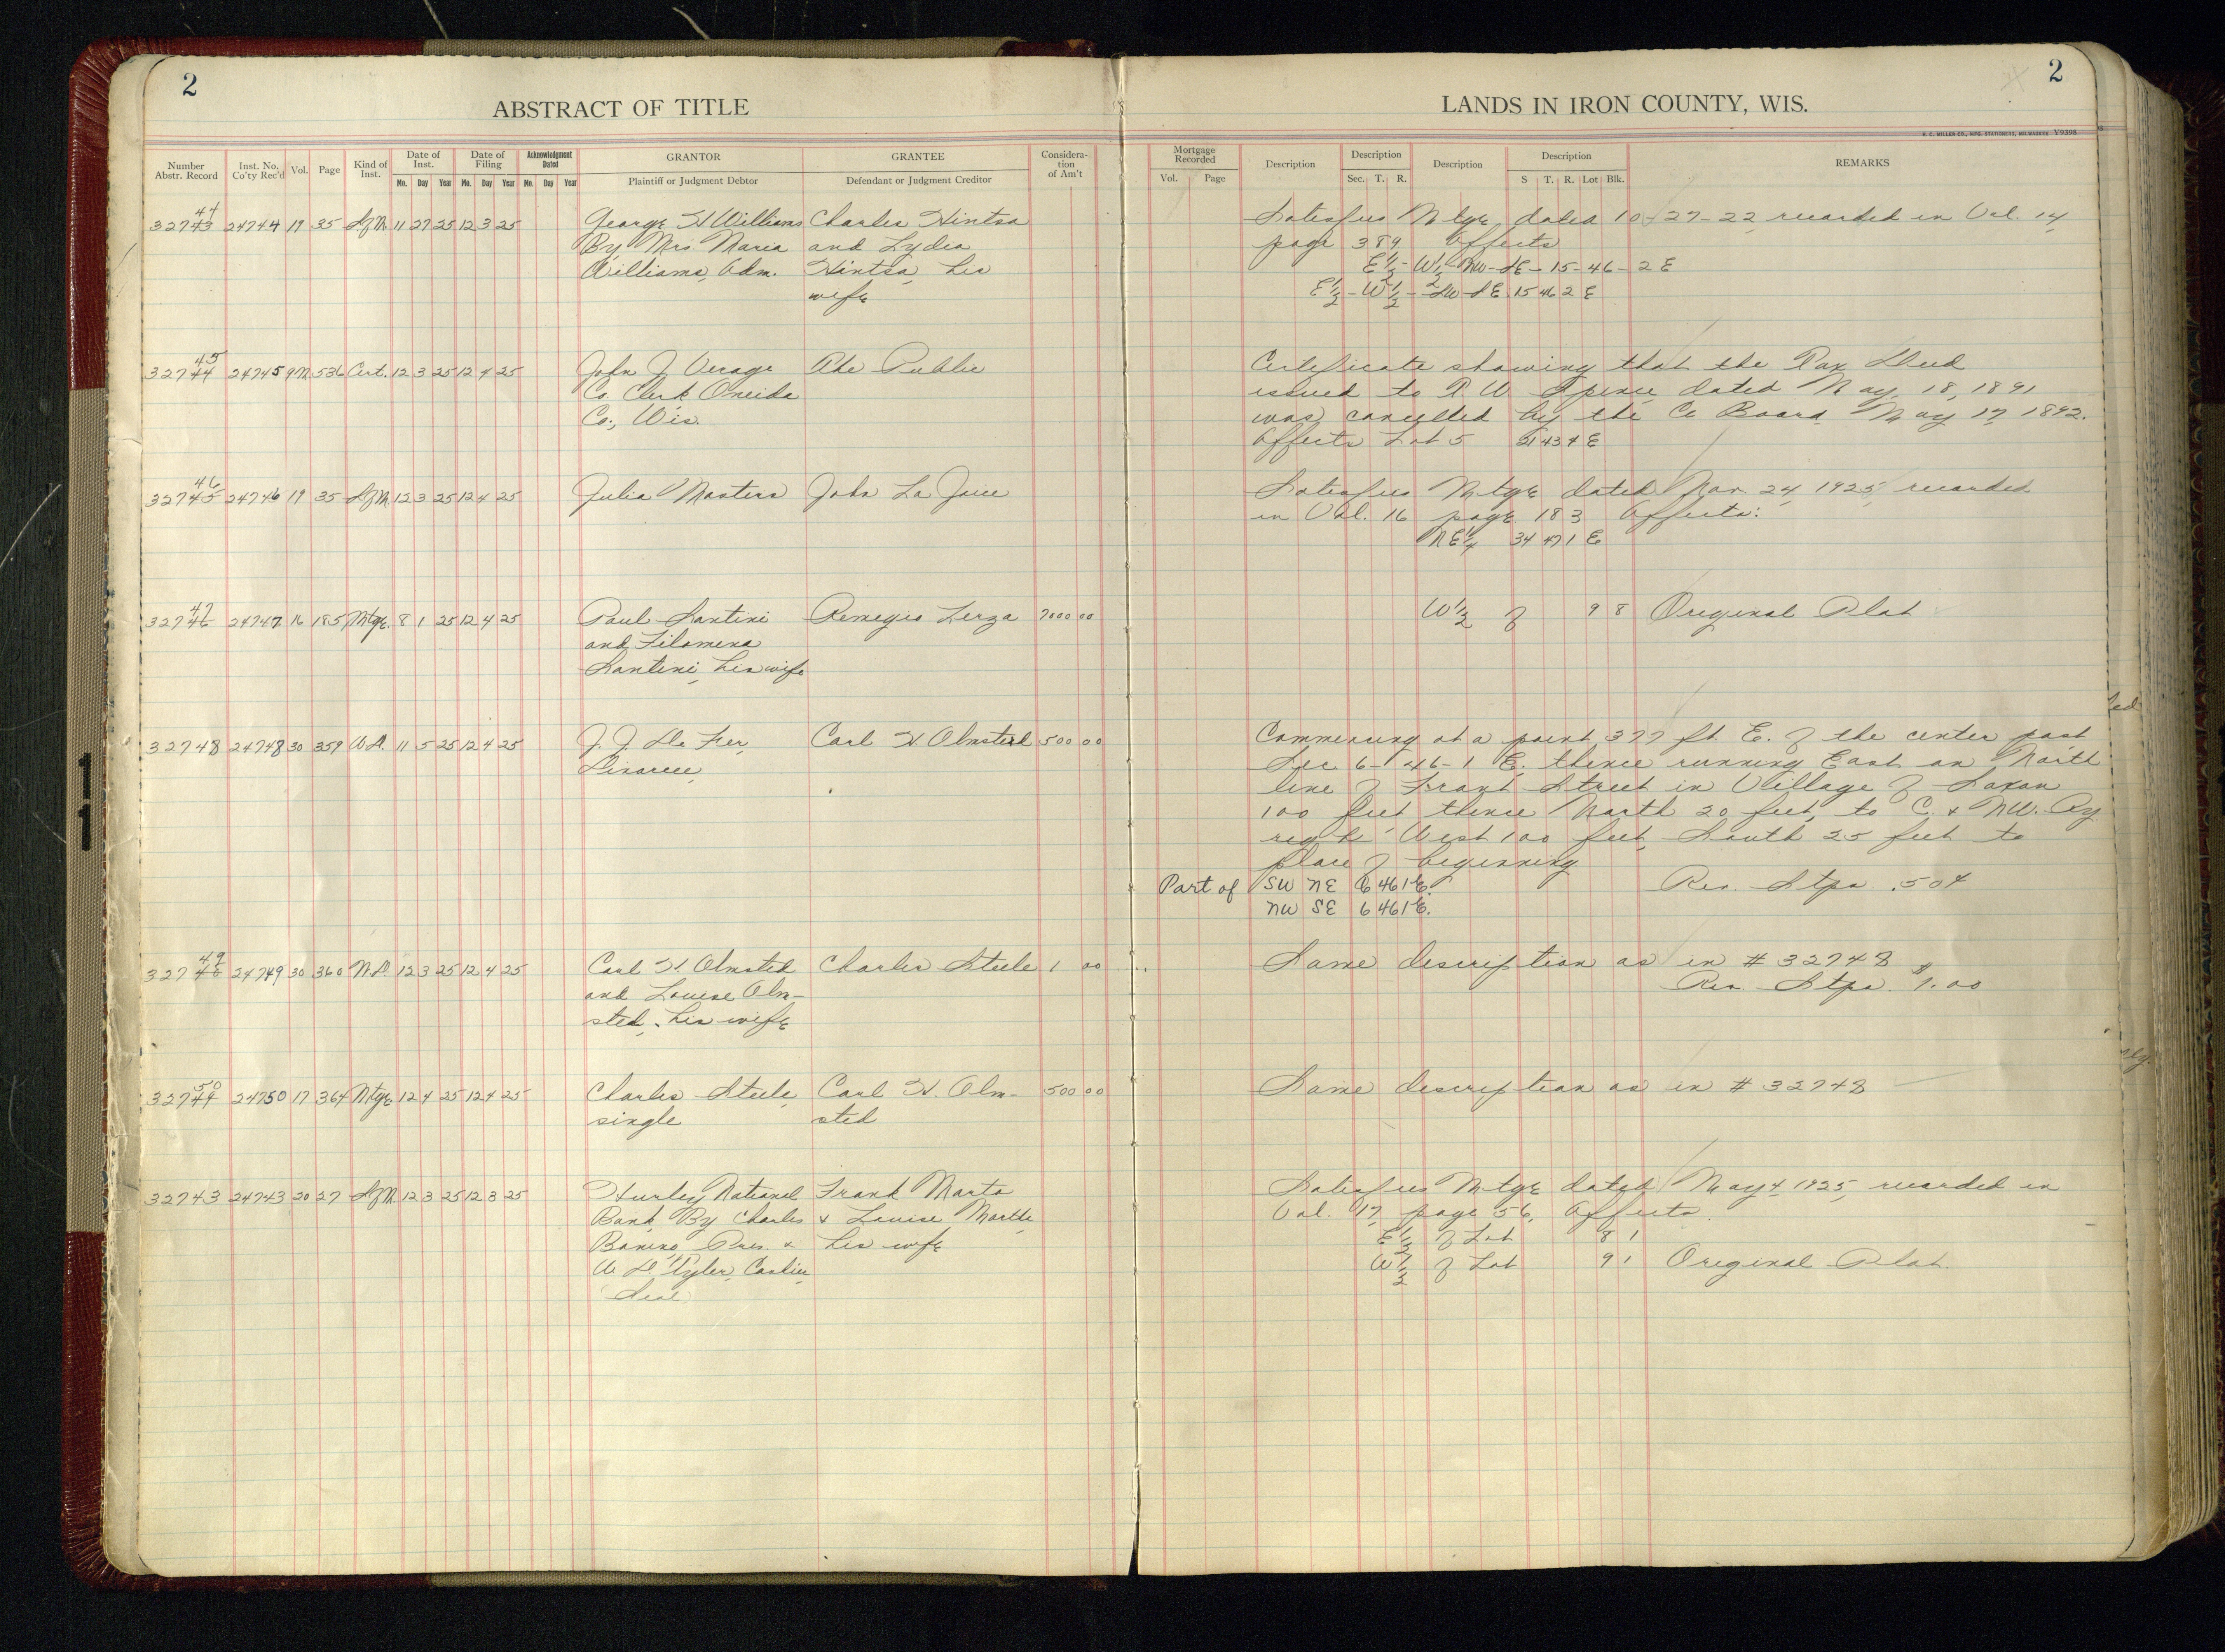 2
ABSTRACT OF TITLE
Number Abstr. Record Inst. No. Co'ty Rec'd Vol. Page Kind of Inst. Date of Inst. Date of Filing Acknowledgment Dated GRANTOR GRANTEE Considera-tion of Am't
Mo. Day Year Mo. Day Year Mo. Day Year Plaintiff or Judgment Debtor Defendant or Judgment Creditor
44
32743 24744 19 35 SfM 11 27 25 12 3 25 George H Williams Charles Hintsa
By Mrs Maria and Lydia
Williams, Adm. Hintsa, his
wife
45
32744 24745 9M 536 Cert. 12 3 25 12 4 25 John J Verage The Public
Co. Clerk Oneida
Co., Wis.
46
32745 24746 19 35 SfM 12 3 25 12 4 25 Julia Masters John La Joice
47
32746 24747 16 185 Mtge 8 1 25 12 4 25 Paul Santini Remegio Lerza 7000 00
and Filomena
Santini, his wife
32748 24748 30 359 W.D. 11 5 25 12 4 25 J. J. De Fer, Carl H. Olmsted 500 00
Divorcee
49
32748 24749 30 360 W.D. 12 3 25 12 4 25 Carl H. Olmsted Charles Steele 1 00
and Louise Olm-
sted, his wife
50
32749 24750 17 364 Mtge 12 4 25 12 4 25 Charles Steele, Carl H. Olm- 500 00
single sted
32743 24743 20 27 SfM 12 3 25 12 3 25 Hurley National Frank Marta
Bank, By Charles & Louise Martta,
Bonino, Pres. & his wife
W. S. Tyler, Cashier
(Seal)
2
LANDS IN IRON COUNTY, WIS.
H. C. MILLER CO., MFG. STATIONERS, MILWAUKEE V9398
Mortgage Recorded Description Description Description Description REMARKS
Vol. Page Sec. T. R. S T. R. Lot Blk.
Satisfies Mtge, dated 10-27-22, recorded in Vol. 14,
page 389 Affects
E½-W½-NW-SE-15-46-2E
E½-W½-SW-SE 15 46 2E
Certificate showing that the Tax Deed
issued to R W Spence dated May, 18, 1891
was cancelled by the Co Board May 17 1892.
Affects Lot 5 21 43 4 E
Satisfies Mtge dated Mar. 24, 1925, recorded
in Vol. 16 page 183 Affects:
NE¼ 34 47 1 E
W½ of 9 8 Original Plat
Commencing at a point 377 ft. E. of the center post
Sec 6-46-1 E. thence running East on North
line of Front Street in Village of Saxon
100 feet thence North 20 feet, to C. & NW. Ry.
right West 100 feet, South 25 feet to
place of beginning
Part of SW NE 6 46 1 E. Rev. Stps .50¢
NW SE 6 46 1 E.
Same description as in # 32748
Rev. Stps. $1.00
Same description as in # 32748
Satisfies Mtge dated May 4 1925, recorded in
Vol. 17, page 56, Affects
E½ of Lot 8 1
W½ of Lot 9 1 Original Plat.